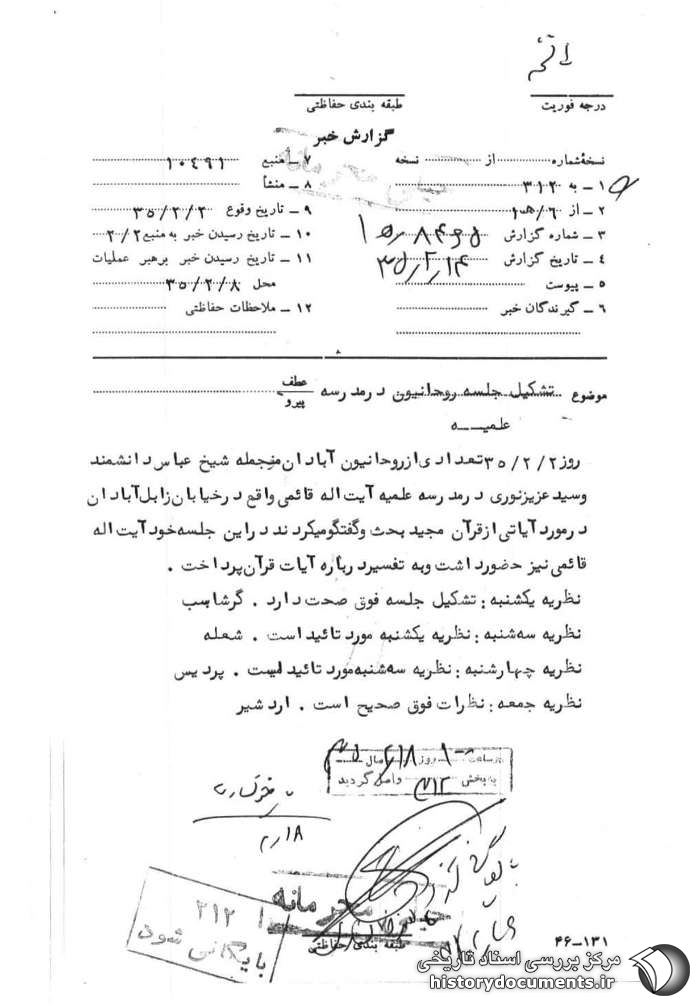 درجه فوریت
طبقه بندی حفاظتی
گزارش خبر
نسخهٔ شماره ........ از ........ نسخه
۱ ـ به ۳۱۲
۲ ـ از ۶/ﻫ ۱
۳ ـ شماره گزارش
۴ ـ تاریخ گزارش ۳۵٫۲٫۱۴
۵ ـ پیوست
۶ ـ گیرندگان خبر
۷ ـ منبع ۱۰۴۹۱
۸ ـ منشأ
۹ ـ تاریخ وقوع ۳۵/۲/۲
۱۰ ـ تاریخ رسیدن خبر به منبع ۲/۲
۱۱ ـ تاریخ رسیدن خبر برهبر عملیات
محل ۳۵/۲/۸
۱۲ ـ ملاحظات حفاظتی
موضوع تشکیل جلسه روحانیون درمدرسه
عطف
پیرو
علمیــه
روز ۳۵/۲/۲ تعدادی از روحانیون آبادان منجمله شیخ عباس دانشمند
وسید عزیز نوری درمدرسه علمیه آیت اله قائمی واقع درخیابان زابل آبادان
درمورد آیاتی از قرآن مجید بحث وگفتگو میکردند دراین جلسه خود آیت اله
قائمی نیز حضور داشت وبه تفسیر درباره آیات قرآن پرداخت .
نظریه یکشنبه : تشکیل جلسه فوق صحت دارد . گرشاسب
نظریه سه شنبه : نظریه یکشنبه مورد تائید است . شعله
نظریه چهارشنبه : نظریه سه شنبه مورد تائید است . پردیس
نظریه جمعه : نظرات فوق صحیح است . اردشیر
درساعت ۱۰ روز ۲٫۱۸ سال ۳۵
به بخش ۳۱۲ واصل گردید
۲٫۱۸
محرمانه
طبقه بندی حفاظتی
۳۱۲
بایگانی شود
۴۶-۱۳۱
مرکز بررسی اسناد تاریخی
historydocuments.ir